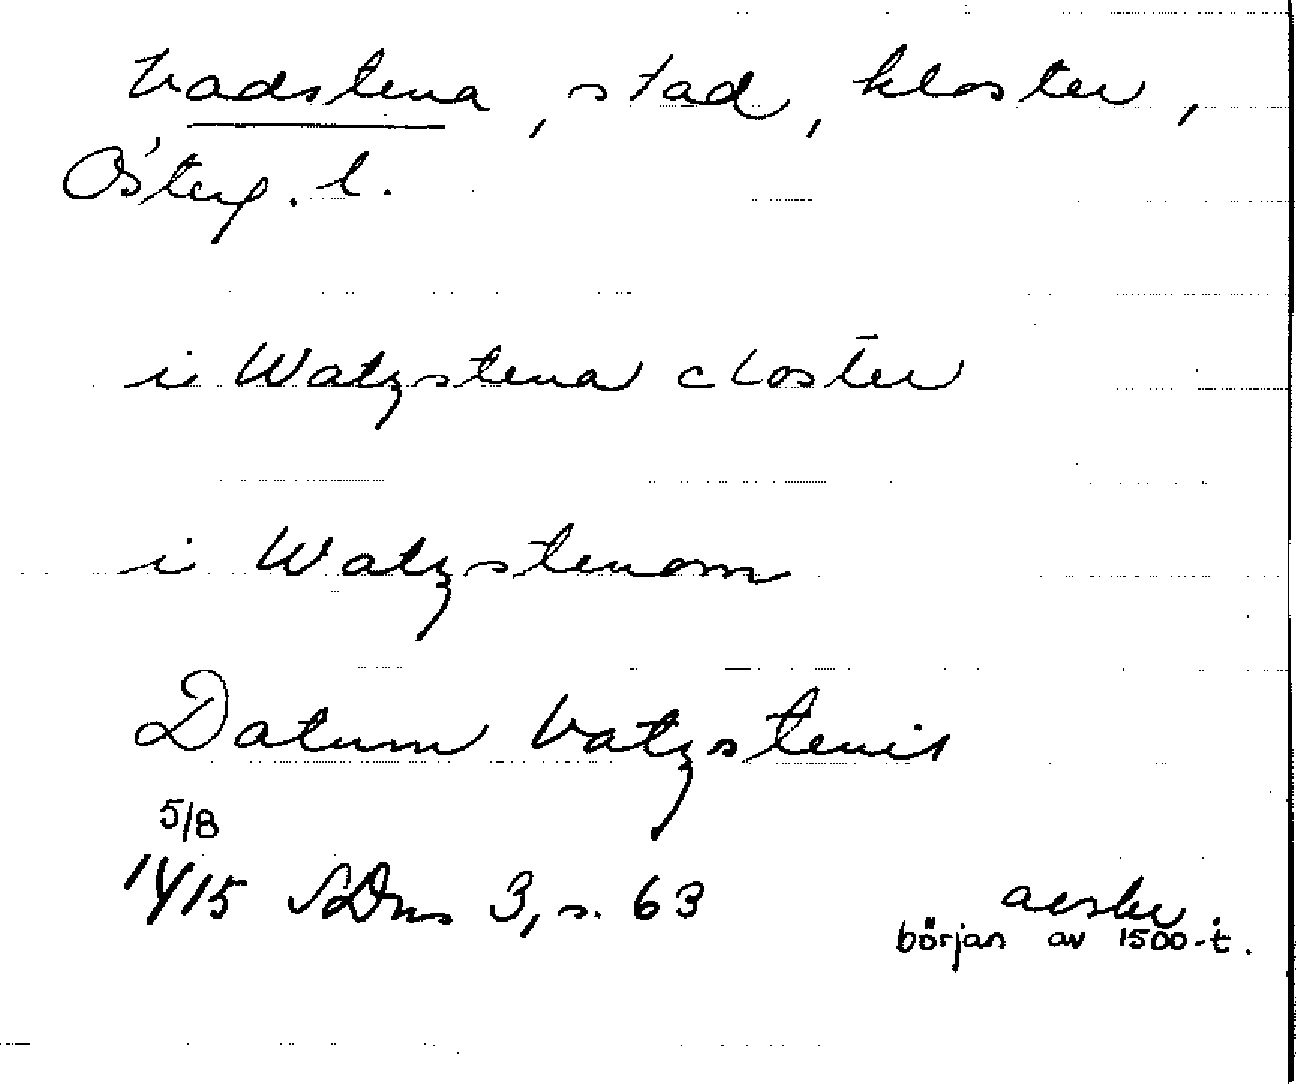 Vadstena, stad, kloster,
Österg. l.
i Watzstena closter
i Watzstenom
Datum Vatzstenis
5/8
1415 SDns 3, s. 63
avskr.
början av 1500-t.